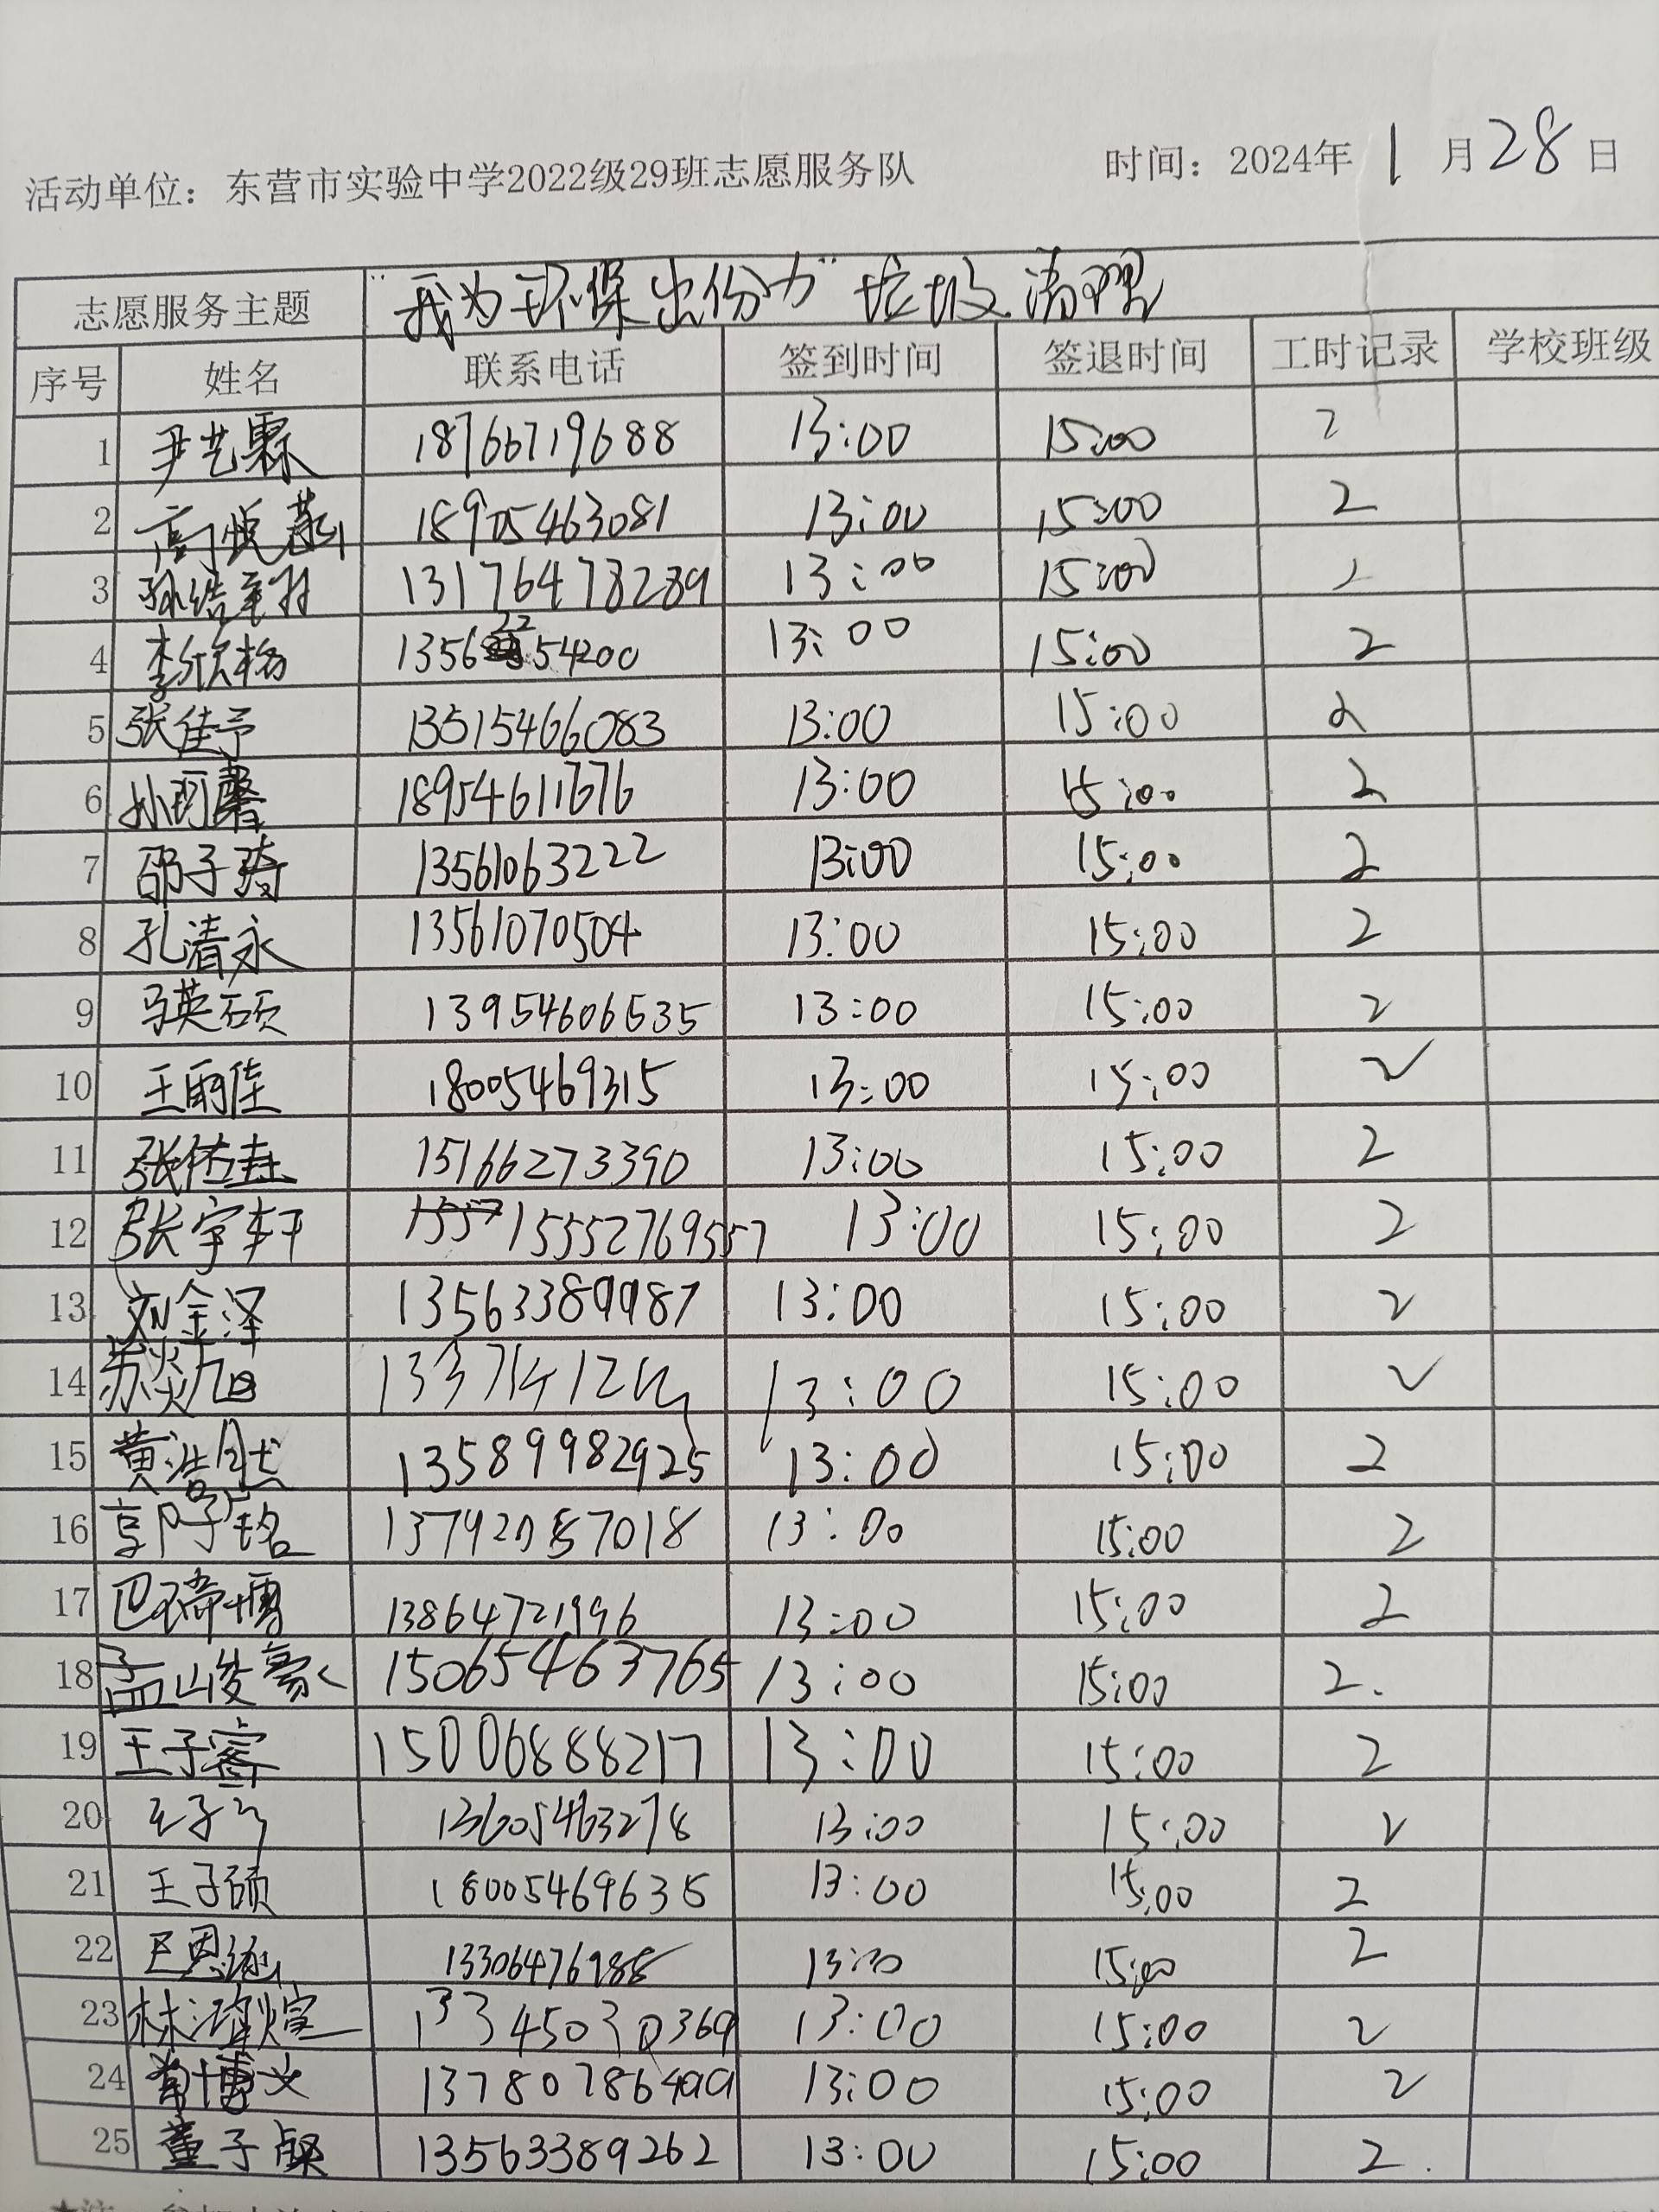 活动单位：东营市实验中学2022级29班志愿服务队 时间：2024年1月28日
志愿服务主题 "我为环保出份力"垃圾清理
序号 姓名 联系电话 签到时间 签退时间 工时记录 学校班级
1 尹艺霖 18766719688 13:00 15:00 2
2 高悦 18905463081 13:00 15:00 2
3 13176478289 13:00 15:00 2
4 李欣杨 13562254200 13:00 15:00 2
5 张佳予 13515466083 13:00 15:00 2
6 孙珂馨 18954611676 13:00 15:00 2
7 邵子琦 13561063222 13:00 15:00 2
8 孔清永 13561070504 13:00 15:00 2
9 马英硕 13954606535 13:00 15:00 2
10 王雨佳 18005469315 13:00 15:00 2
11 张佑 15166273390 13:00 15:00 2
12 张宇轩 15552769557 13:00 15:00 2
13 刘金泽 13563389987 13:00 15:00 2
14 苏炎旭 13:00 15:00 2
15 黄浩然 13589982925 13:00 15:00 2
16 郭子铭 13:00 15:00 2
17 巴瑞博 13864721996 13:00 15:00 2
18 孟峻豪 15065463765 13:00 15:00 2.
19 王子睿 15006888217 13:00 15:00 2
20 王子 13605463278 13:00 15:00 2
21 王子硕 18005469635 13:00 15:00 2
22 13306476985 13:00 15:00 2
23 林煊 13345030369 13:00 15:00 2
24 博文 13:00 15:00 2
25 董子 13563389262 13:00 15:00 2.